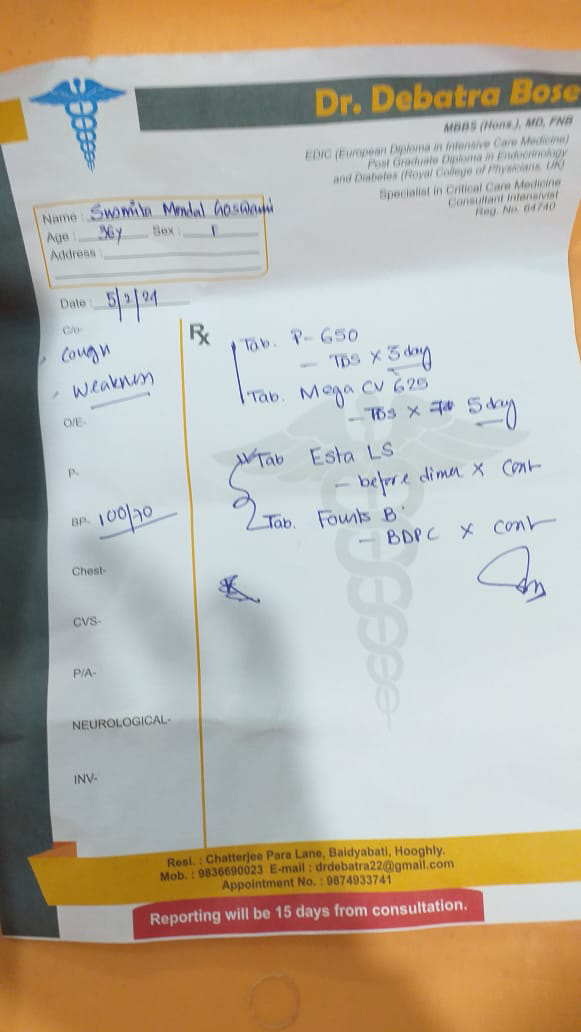 Dr. Debatra Bose
MBBS (Hons.), MD, FNB
EDIC (European Diploma in Intensive Care Medicine)
Post Graduate Diploma in Endocrinology
and Diabetes (Royal College of Physicians, UK)
Specialist in Critical Care Medicine
Consultant Intensivist
Reg. No. 64740
Name : Swomita Mondal Goswami
Age : 36y Sex : F
Address :
Date : 5/2/24
C/o-
Cough
Weakness
O/E-
P-
BP- 100/70
Chest-
CVS-
P/A-
NEUROLOGICAL-
INV-
Rx
Tab. P-650
- TDS x 3 day
Tab. Mega CV 625
- TDS x 5 day
Tab Esta LS
- before dinner x cont
Tab. Founts B
- BDPC x cont
Resi. : Chatterjee Para Lane, Baidyabati, Hooghly.
Mob. : 9836690023 E-mail : drdebatra22@gmail.com
Appointment No. : 9874933741
Reporting will be 15 days from consultation.